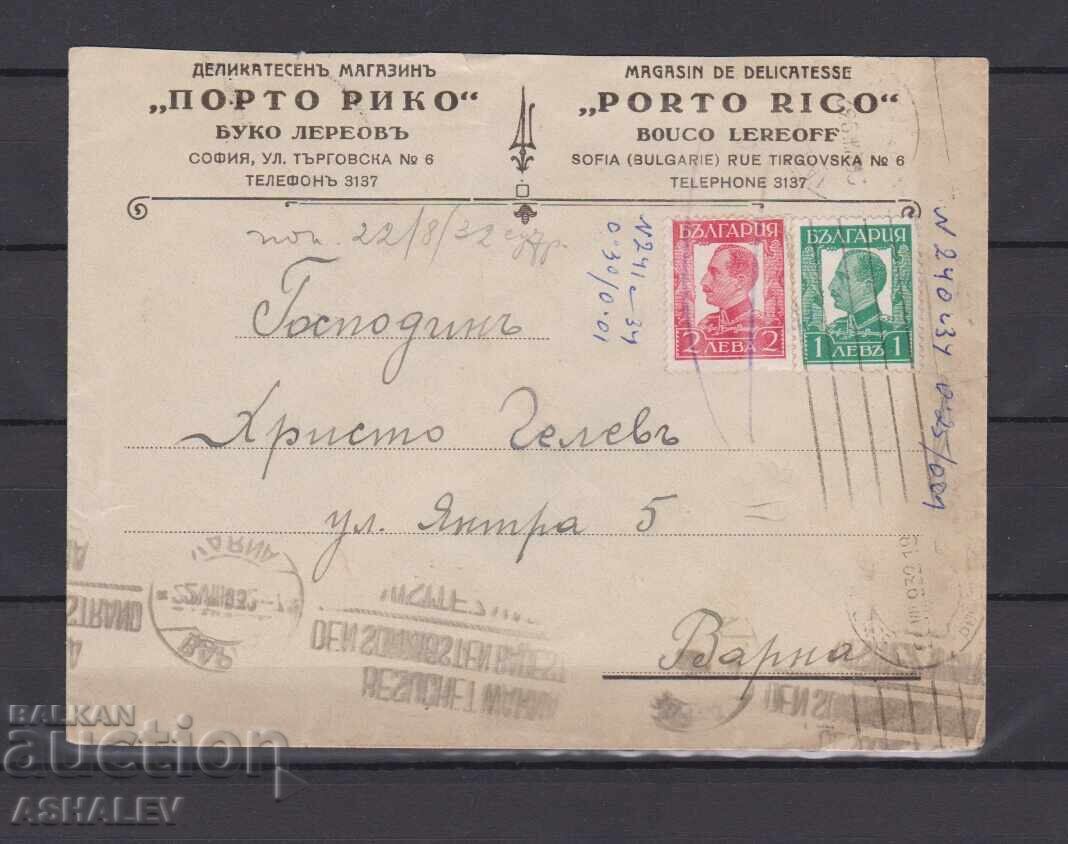 ДЕЛИКАТЕСЕНЪ МАГАЗИНЪ
„ПОРТО РИКО“
БУКО ЛЕРЕОВЪ
СОФИЯ, УЛ. ТЪРГОВСКА № 6
ТЕЛЕФОНЪ 3137
MAGASIN DE DELICATESSE
„PORTO RICO“
BOUCO LEREOFF
SOFIA (BULGARIE) RUE TIRGOVSKA № 6
TELEPHONE 3137
22/8/32
N241-34
0'30/0.01
N 240
БЪЛГАРИЯ
2 ЛЕВА 2
БЪЛГАРИЯ
1 ЛЕВЪ 1
Господинъ
Христо Гелевъ
ул. Янтра 5
Варна
VARNA
22 VIII 932
ВАР
STRAND
DEN SONNIGSTEN
BESUCHET
DEN
BALKAN
auction
ASHALEV